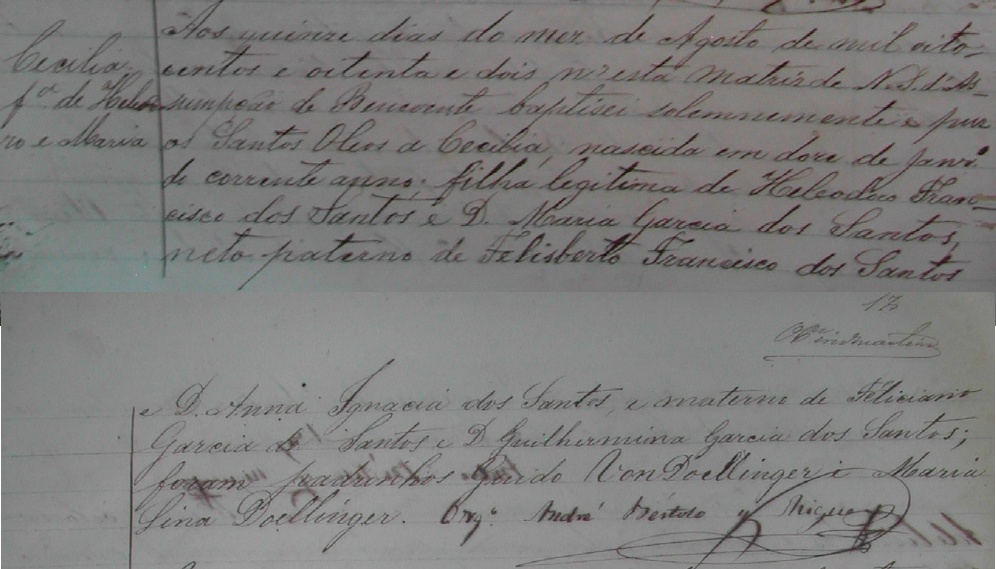 Aos quinze dias do mez de Agosto de mil oito-
centos e oitenta e dois n'esta Matriz de N. S. d'As-
sumpção de Benevente baptisei solemnemente e puz
os Santos Oleos a Cecilia, nascida em doze de Janrº
do corrente anno; filha legitima de Heleodoro Fran-
cisco dos Santos e D. Maria Garcia dos Santos,
neto paterno de Felisberto Francisco dos Santos
Cecilia
fª de Heleo
ro e Maria
13
e D. Anna Ignacia dos Santos, e materno de Feliciano
Garcia dos Santos e D. Guilhermina Garcia dos Santos;
foram padrinhos Guido Von Doellinger e Maria
Lina Doellinger. André